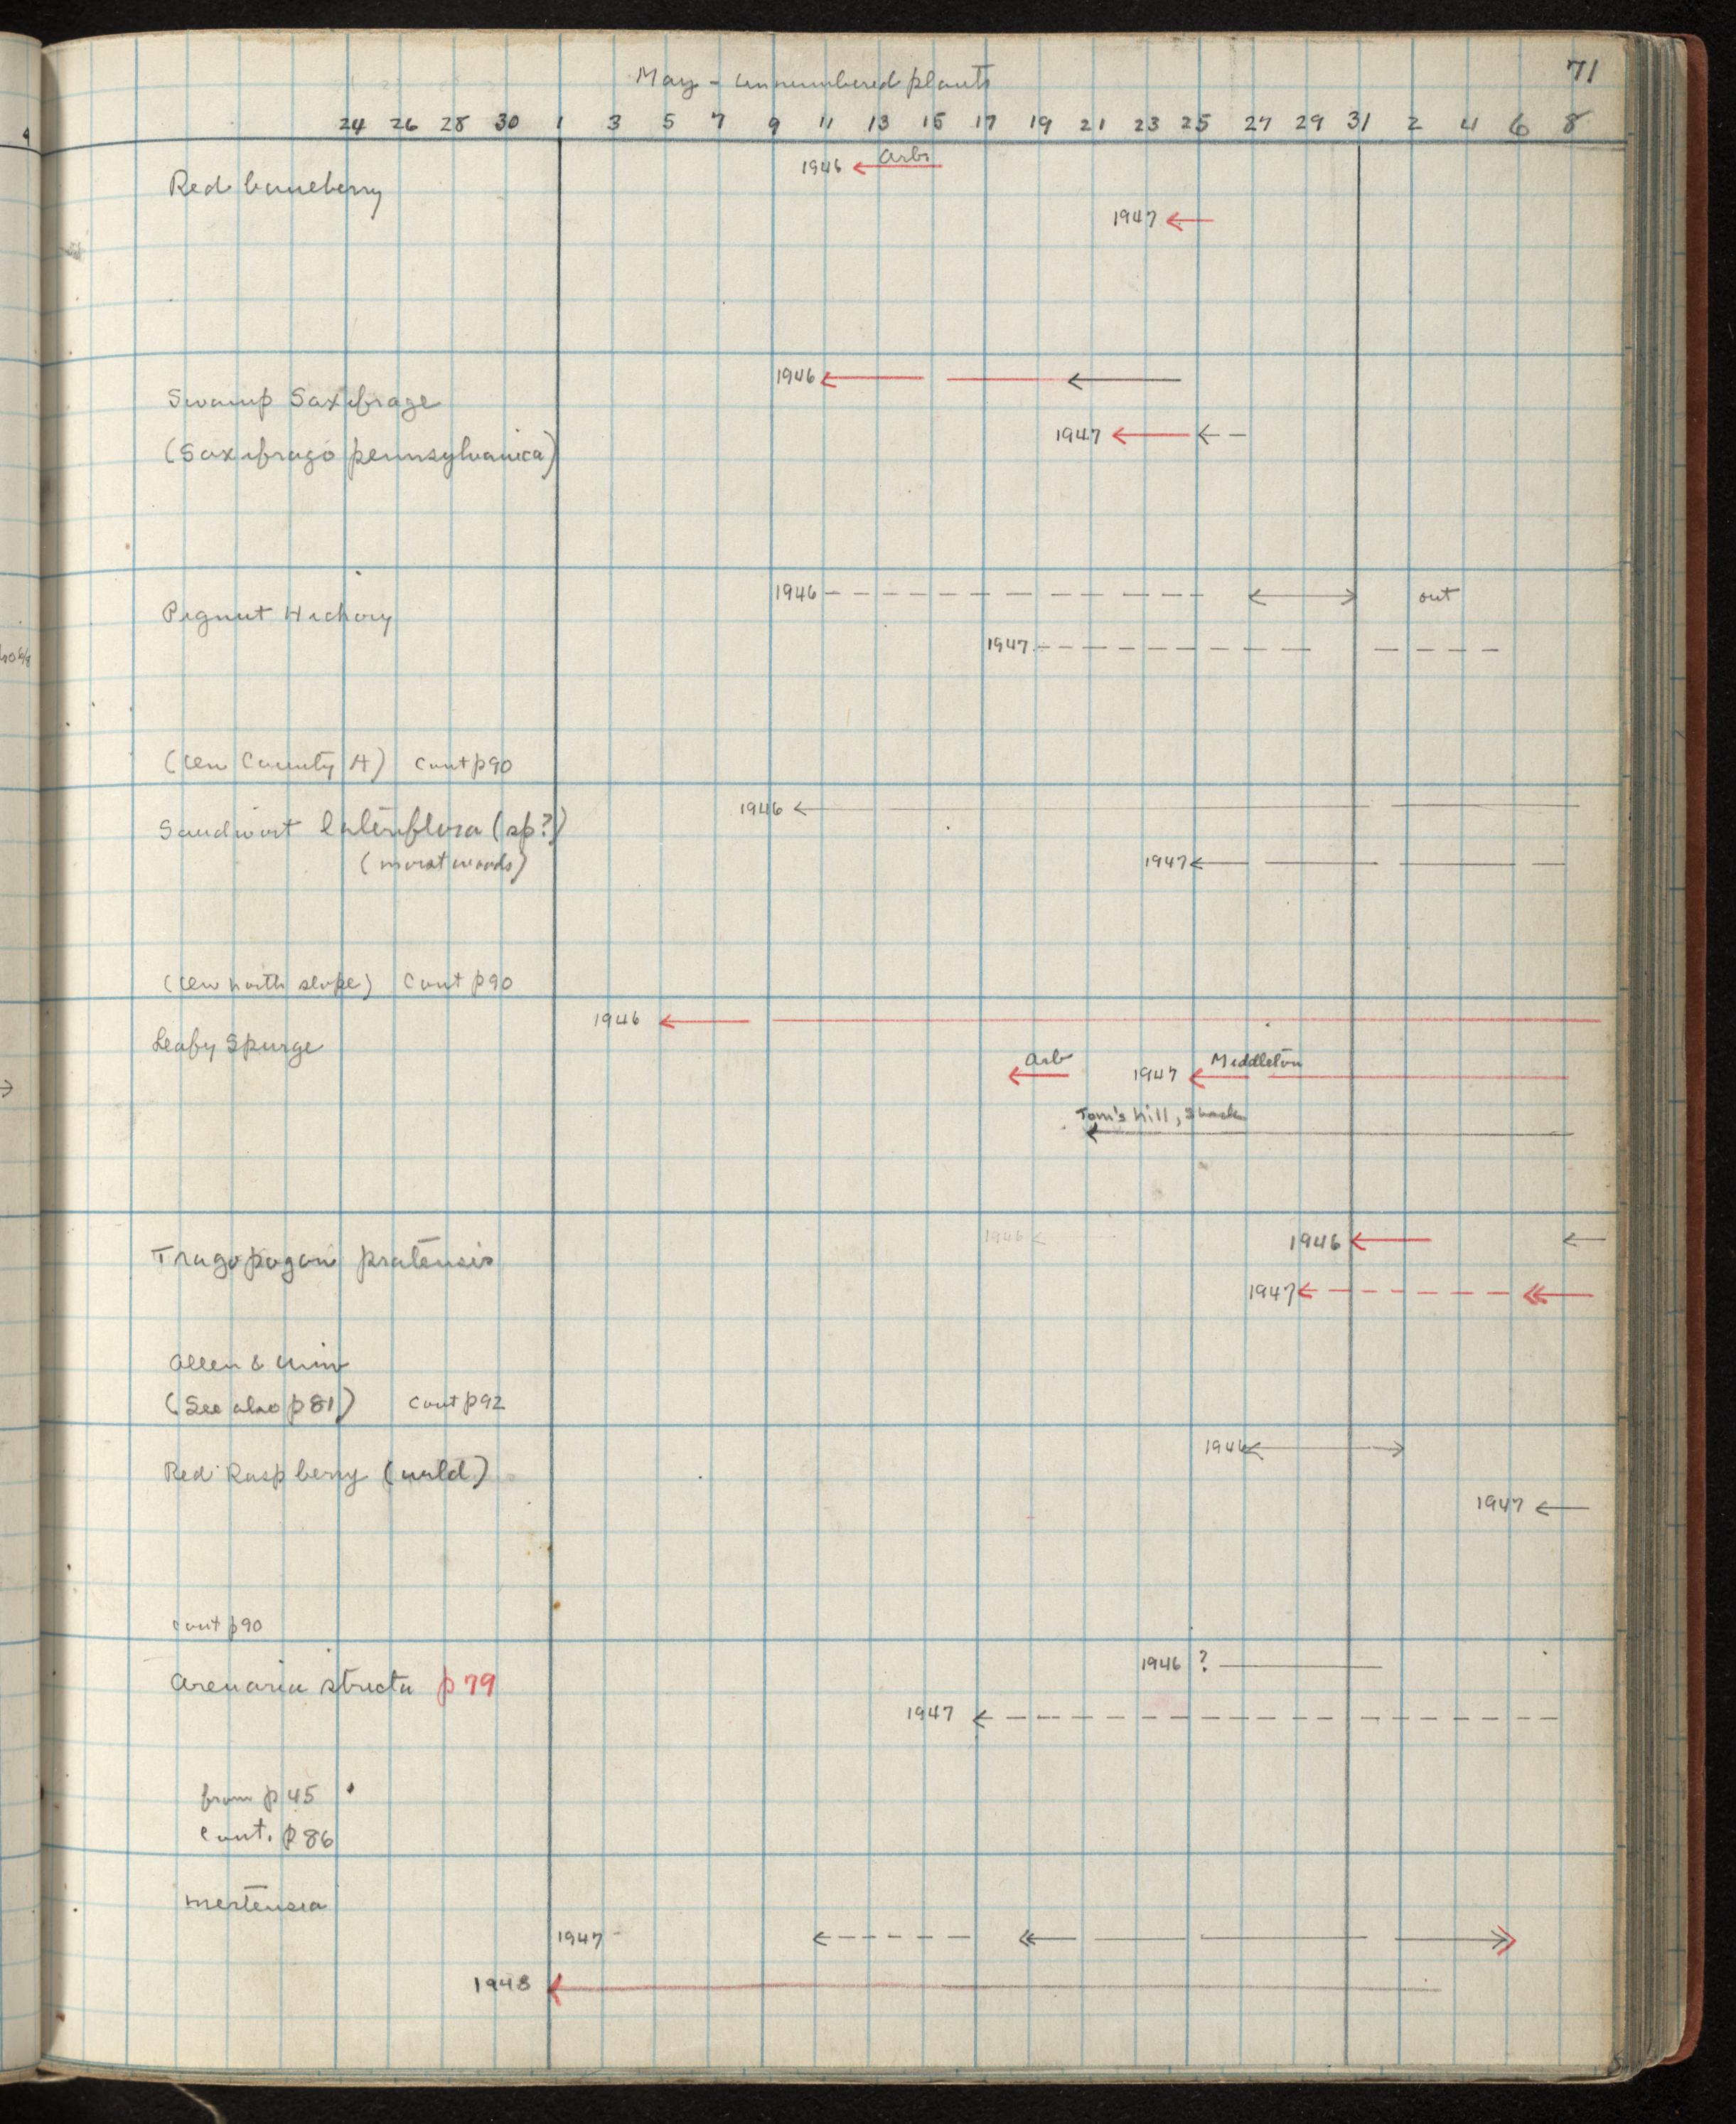 May - unnumbered plants 71
24 26 28 30 1 3 5 7 9 11 13 15 17 19 21 23 25 27 29 31 2 4 6 8
1946 Arb
Red baneberry
1947
1946
Swamp Saxifrage
1947
(Saxifraga pennsylvanica)
1946 out
Pignut Hickory
1947
(Un County H) Cont p90
1946
Sandwort lateriflora (sp?)
(moist woods)
1947
(Un north slope) Cont p90
1946
Leafy Spurge
Arb 1947 Middleton
Tom's hill, Shack
1946 1946
Tragopogon pratensis
1947
Allen & Univ
(See also p81) Cont p92
1946
Red Raspberry (wild)
1947
Cont p90
1946 ?
Arenaria stricta p79
1947
from p 45
Cont. p 86
Mertensia
1947
1948